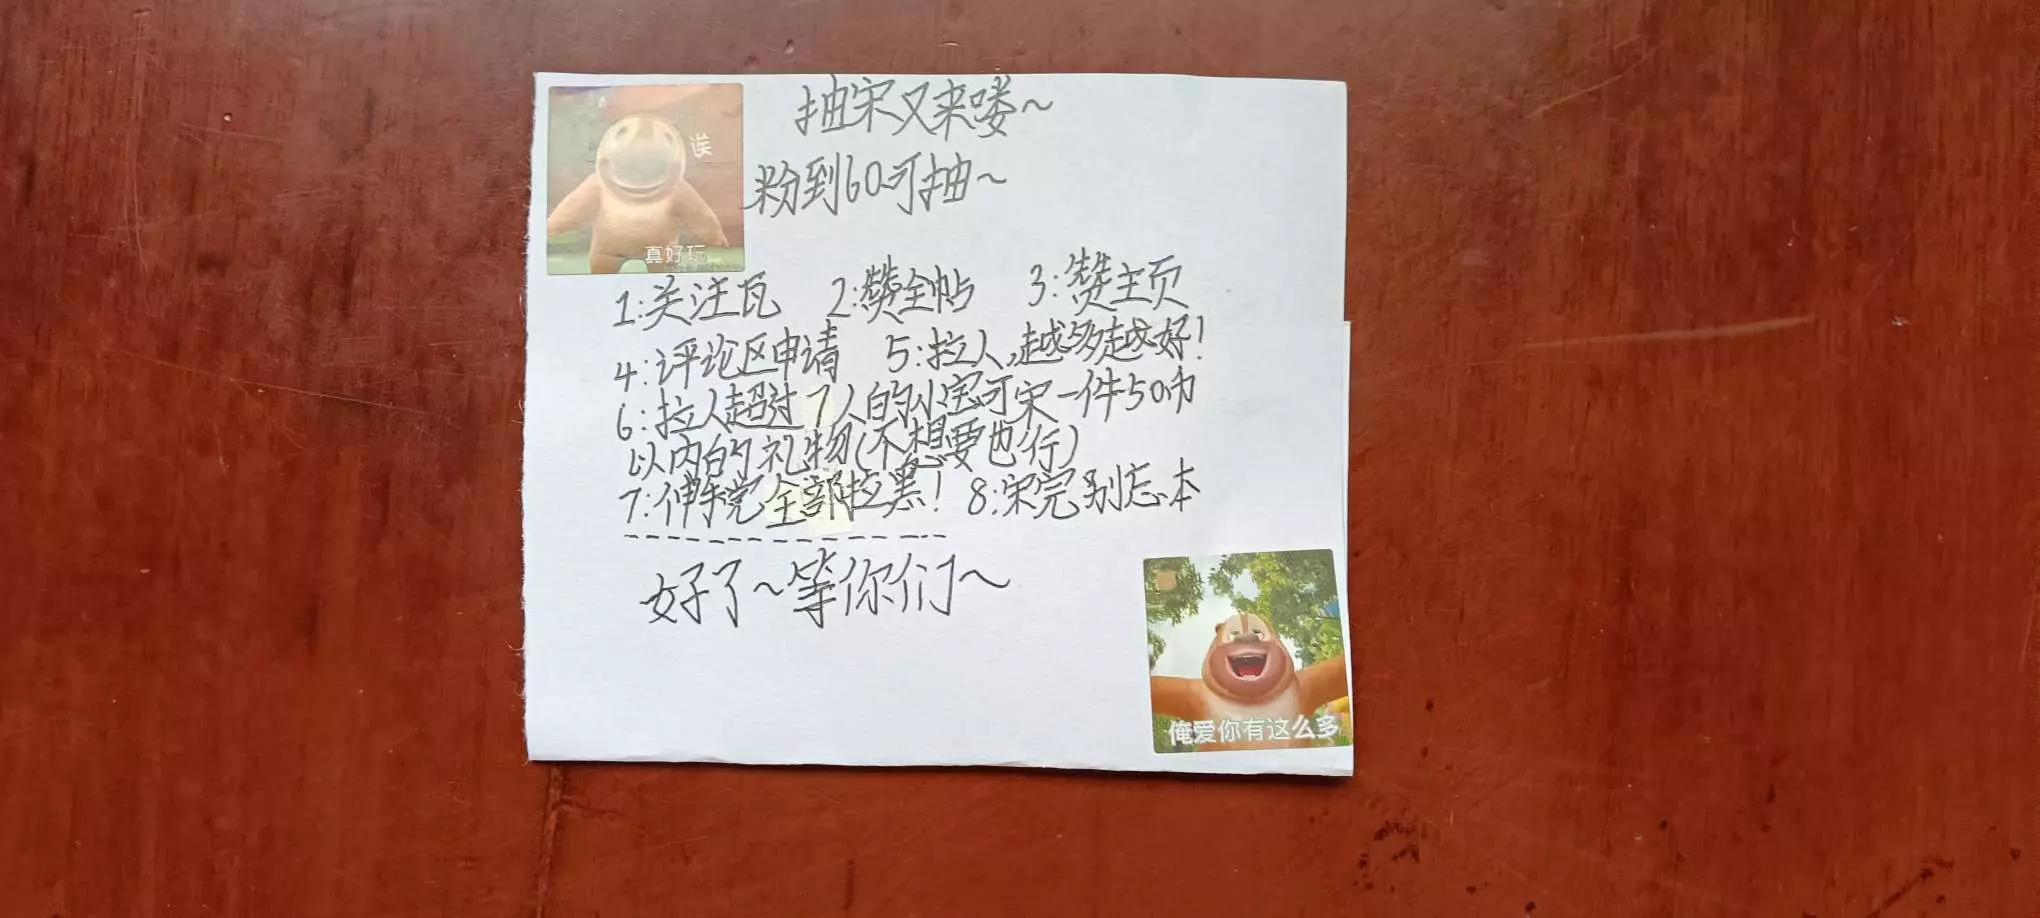 抽宋又来喽~
粉到60可抽~
诶
真好玩
1:关注瓦 2:赞全帖 3:赞主页
4:评论区申请 5:拉人,越多越好!
6:拉人超过7人的小宝可宋一件50内
以内的礼物(不想要也行)
7:伸手党全部拉黑! 8:宋完别忘本
好了~等你们~
俺爱你有这么多